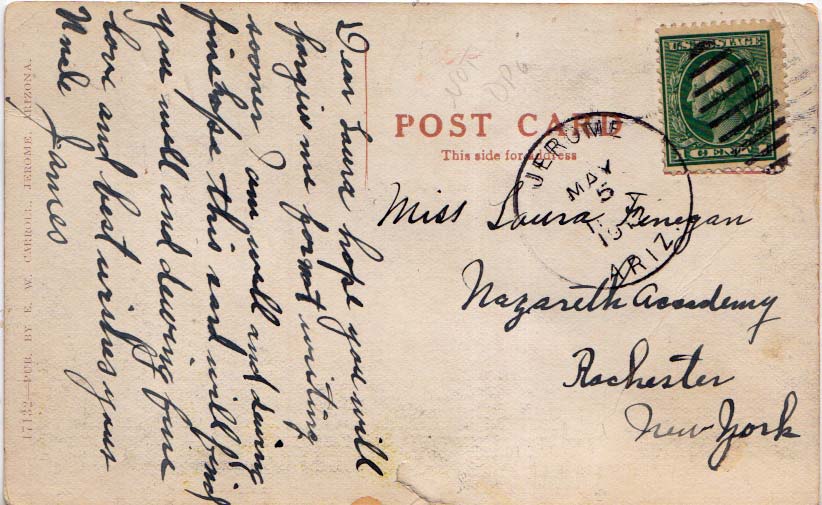 Dear Laura hope you will
forgive me for not writing
sooner I am well and dewing
fine hope this card will find
you well and dewing fine
love and best wishes your
Uncle James
17132—PUB. BY E. W. CARROLL, JEROME, ARIZONA.
POST CARD
This side for address
U.S. POSTAGE
1 CENT
JEROME
MAY
5
ARIZ.
Miss Laura Finegan
Nazareth Accademy
Rochester
New York